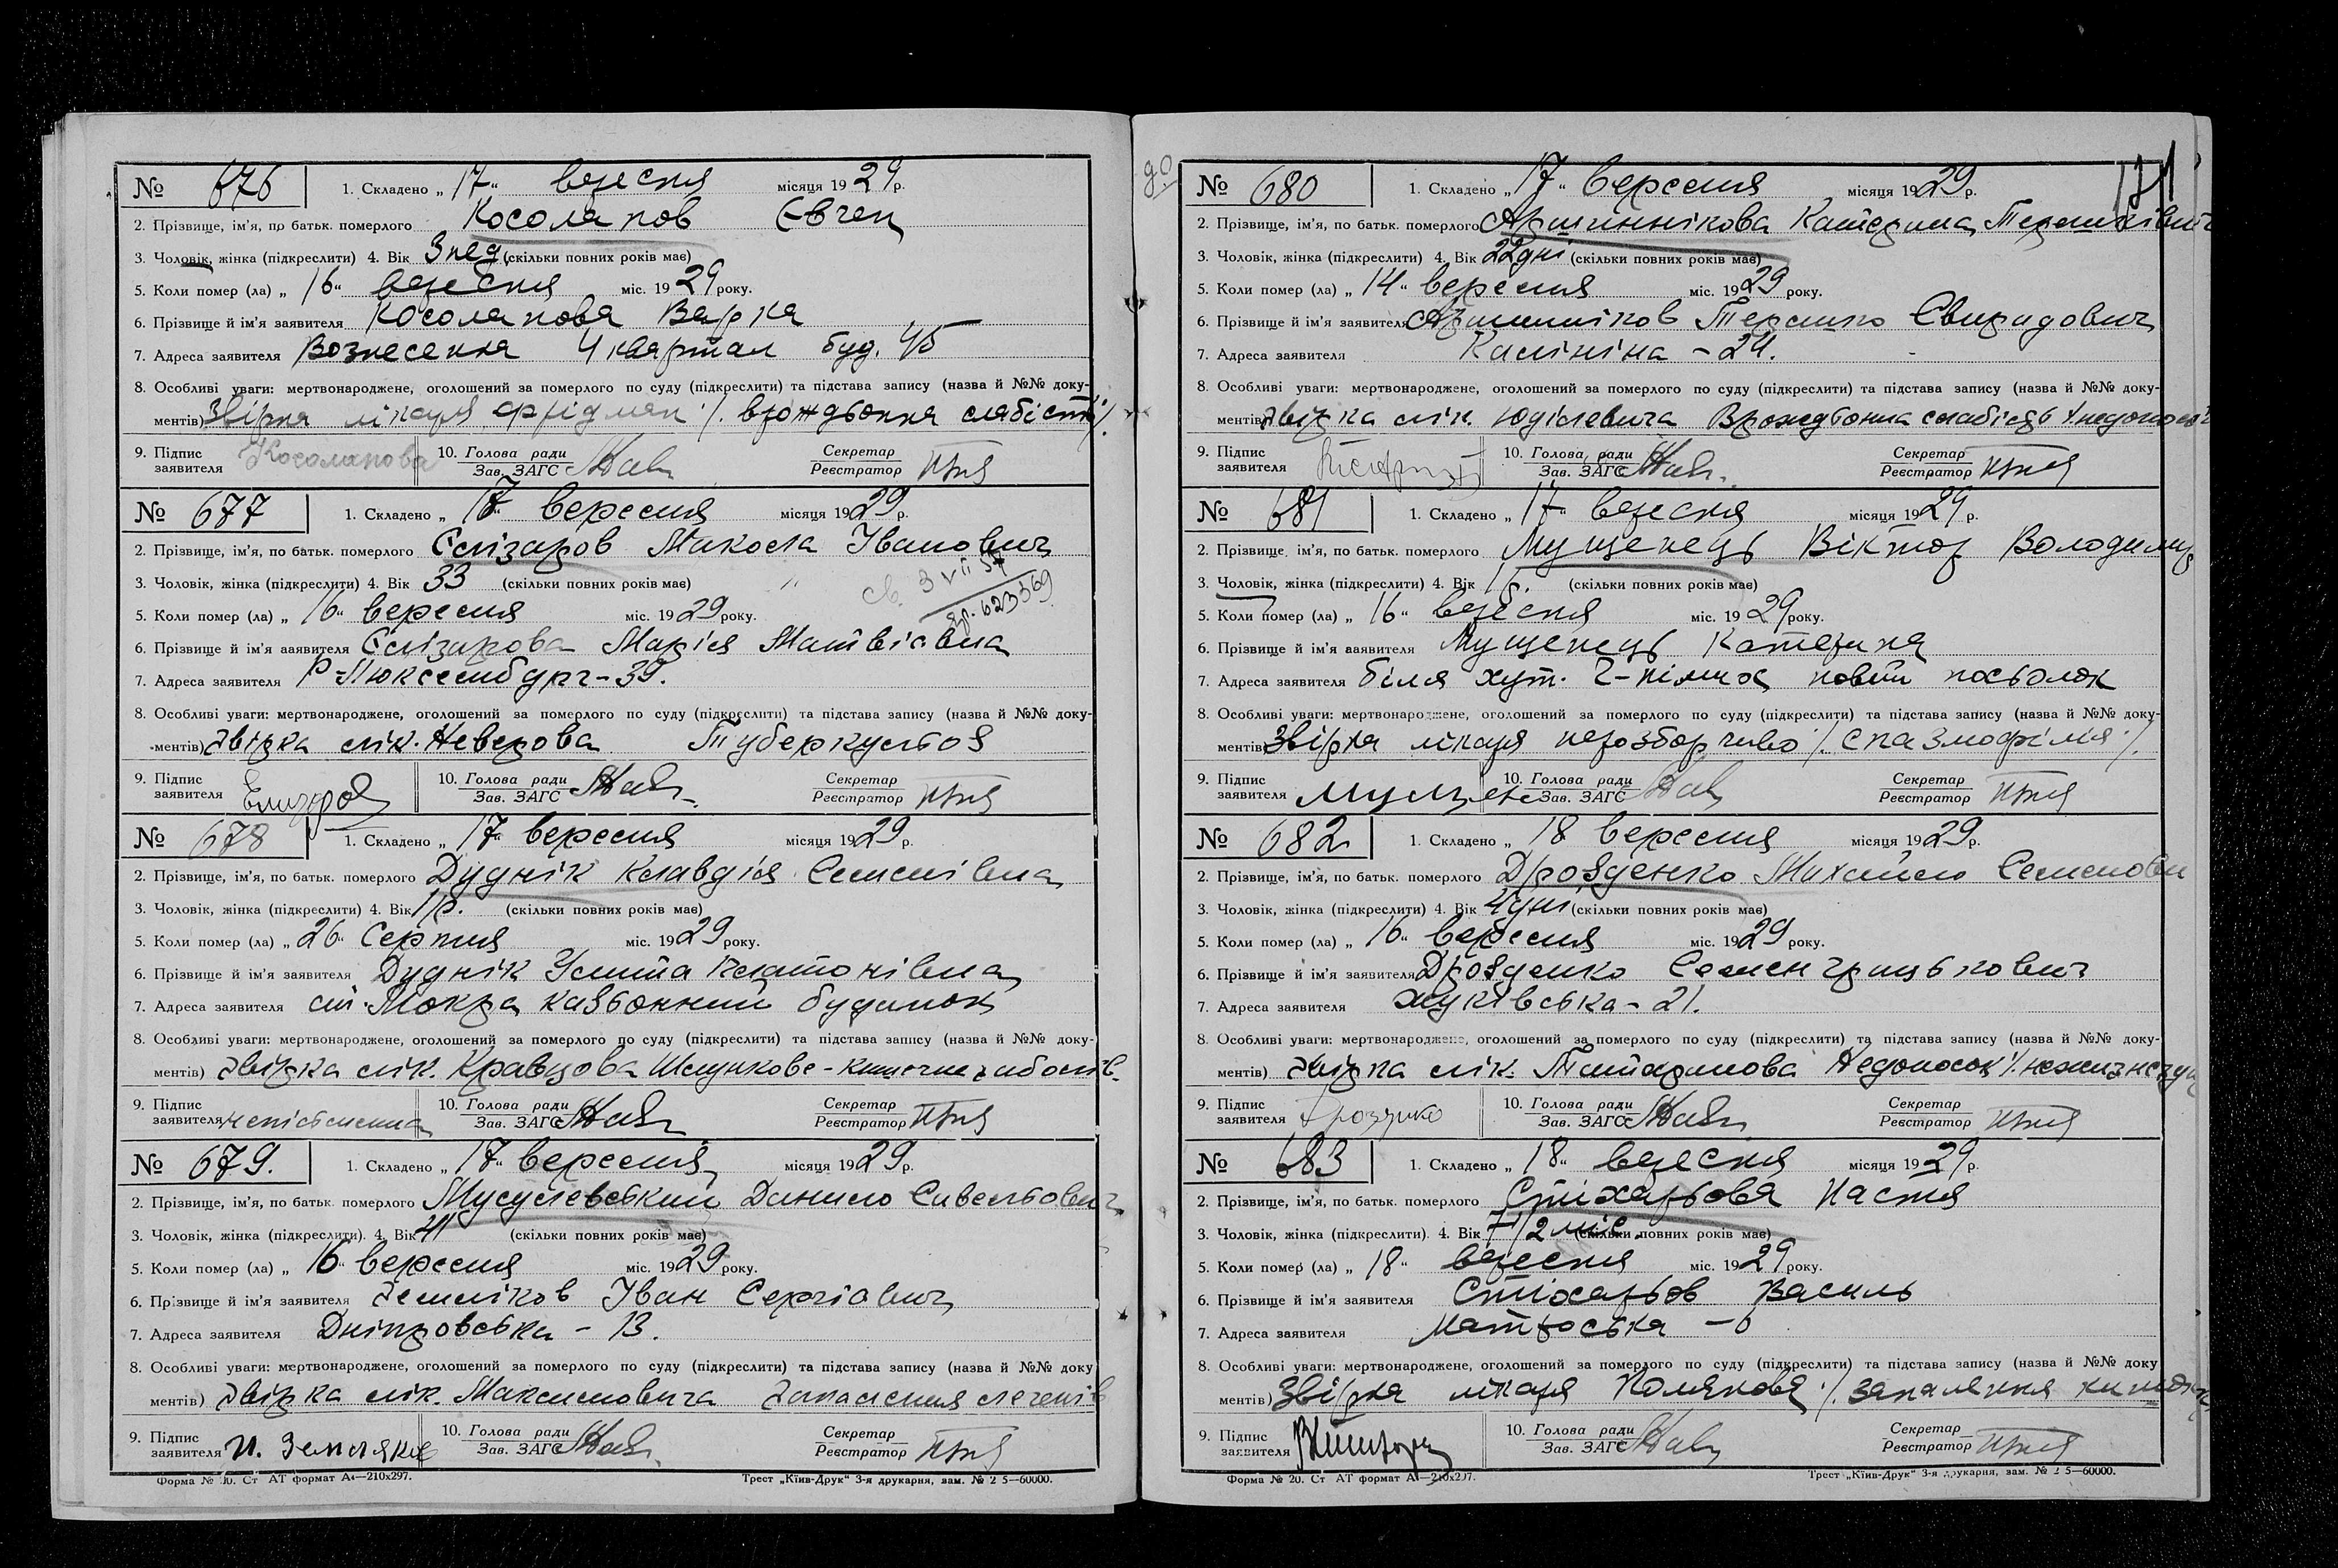 № 676 1. Складено „ 17 “ вересня місяця 1929 р.
2. Прізвище, ім'я, по батьк. померлого Косолапов Євген
3. Чоловік, жінка (підкреслити) 4. Вік 3 нед. (скільки повних років має)
5. Коли помер (ла) „ 16 “ вересня міс. 1929 року.
6. Прізвище й ім'я заявителя Косолапова Варка
7. Адреса заявителя Вознесенка 4 квартал буд. 45
8. Особливі уваги: мертвонароджене, оголошений за померлого по суду (підкреслити) та підстава запису (назва й №№ доку-
ментів) Звірка лікаря Фрідман /. врождьонна слабість /.
9. Підпис заявителя Косолапова 10. Голова ради Зав. ЗАГС Секретар Реєстратор
№ 677 1. Складено „ 17 “ вересня місяця 1929 р.
2. Прізвище, ім'я, по батьк. померлого Єлізаров Микола Іванович
3. Чоловік, жінка (підкреслити) 4. Вік 33 (скільки повних років має)
св. 3 VII 57
5. Коли помер (ла) „ 16 “ вересня міс. 1929 року.
6. Прізвище й ім'я заявителя Єлізарова Марія Матвієвна
7. Адреса заявителя Р-Люксембург-39.
8. Особливі уваги: мертвонароджене, оголошений за померлого по суду (підкреслити) та підстава запису (назва й №№ доку-
ментів) Звірка лік. Неверова Туберкульоз
9. Підпис заявителя 10. Голова ради Зав. ЗАГС Секретар Реєстратор
№ 678 1. Складено „ 17 “ вересня місяця 1929 р.
2. Прізвище, ім'я, по батьк. померлого Дуднік Клавдія Семенівна
3. Чоловік, жінка (підкреслити) 4. Вік 1 р. (скільки повних років має)
5. Коли помер (ла) „ 26 “ Серпня міс. 1929 року.
6. Прізвище й ім'я заявителя Дуднік Улита Платонівна
7. Адреса заявителя ст. Мокра казьонний будинок
8. Особливі уваги: мертвонароджене, оголошений за померлого по суду (підкреслити) та підстава запису (назва й №№ доку-
ментів) Звірка лік. Кравцова Шлункове-кишечне заболів.
9. Підпис заявителя непісьменна 10. Голова ради Зав. ЗАГС Секретар Реєстратор
№ 679. 1. Складено „ 17 “ вересня місяця 1929 р.
2. Прізвище, ім'я, по батьк. померлого Мусулевський Данило Савельович
3. Чоловік, жінка (підкреслити). 4. Вік 41 (скільки повних років має)
5. Коли помер (ла) „ 16 “ вересня міс. 1929 року.
6. Прізвище й ім'я заявителя Земляков Іван Сергіович
7. Адреса заявителя Дніпровська - 13.
8. Особливі уваги: мертвонароджене, оголошений за померлого по суду (підкреслити) та підстава запису (назва й №№ доку
ментів) Звірка лік. Максимовича Запалення легенів
9. Підпис заявителя И. Земляков 10. Голова ради Зав. ЗАГС Секретар Реєстратор
Форма № 20. Ст АТ формат А4—210х297. Трест „Київ-Друк“ 3-я друкарня, зам. № 2 5—60000.
171
№ 680 1. Складено „ 17 “ вересня місяця 1929 р.
2. Прізвище, ім'я, по батьк. померлого Аршиннікова Катерина
3. Чоловік, жінка (підкреслити) 4. Вік 22 дні (скільки повних років має)
5. Коли помер (ла) „ 14 “ вересня міс. 1929 року.
6. Прізвище й ім'я заявителя Аршинніков Терешко Свиридович
7. Адреса заявителя Калініна - 24.
8. Особливі уваги: мертвонароджене, оголошений за померлого по суду (підкреслити) та підстава запису (назва й №№ доку-
ментів) Звірка лік. Юділевича Врождьонна слабість
9. Підпис заявителя 10. Голова ради Зав. ЗАГС Секретар Реєстратор
№ 681 1. Складено „ 17 “ вересня місяця 1929 р.
2. Прізвище, ім'я, по батьк. померлого Мущенець Віктор Володимир
3. Чоловік, жінка (підкреслити) 4. Вік 1 р. (скільки повних років має)
5. Коли помер (ла) „ 16 “ вересня міс. 1929 року.
6. Прізвище й ім'я заявителя Мущенець Катерина
7. Адреса заявителя біля хут. новий посьолок
8. Особливі уваги: мертвонароджене, оголошений за померлого по суду (підкреслити) та підстава запису (назва й №№ доку-
ментів) Звірка лікаря нерозборчиво /. спазмофілія /.
9. Підпис заявителя 10. Голова ради Зав. ЗАГС Секретар Реєстратор
№ 682 1. Складено „ 18 вересня місяця 1929 р.
2. Прізвище, ім'я, по батьк. померлого Дрозденко Михайло Семенови
3. Чоловік, жінка (підкреслити) 4. Вік 4 дні (скільки повних років має)
5. Коли помер (ла) „ 16 “ вересня міс. 1929 року.
6. Прізвище й ім'я заявителя Дрозденко Семен Грицькович
7. Адреса заявителя Жуківська - 21.
8. Особливі уваги: мертвонароджене, оголошений за померлого по суду (підкреслити) та підстава запису (назва й №№ доку-
ментів) Звірка лік. Татаринова Недоносок /.
9. Підпис заявителя 10. Голова ради Зав. ЗАГС Секретар Реєстратор
№ 683 1. Складено „ 18 “ вересня місяця 1929 р.
2. Прізвище, ім'я, по батьк. померлого Стіхарьова Настя
3. Чоловік, жінка (підкреслити). 4. Вік 7 1/2 міс. (скільки повних років має)
5. Коли помер (ла) „ 18 “ вересня міс. 1929 року.
6. Прізвище й ім'я заявителя Стіхарьов Василь
7. Адреса заявителя Матроська - 6
8. Особливі уваги: мертвонароджене, оголошений за померлого по суду (підкреслити) та підстава запису (назва й №№ доку
ментів) Звірка лікаря Полякова /. запалення кишок
9. Підпис заявителя 10. Голова ради Зав. ЗАГС Секретар Реєстратор
Форма № 20. Ст АТ формат А4—210х297. Трест „Київ-Друк“ 3-я друкарня, зам. № 2 5—60000.